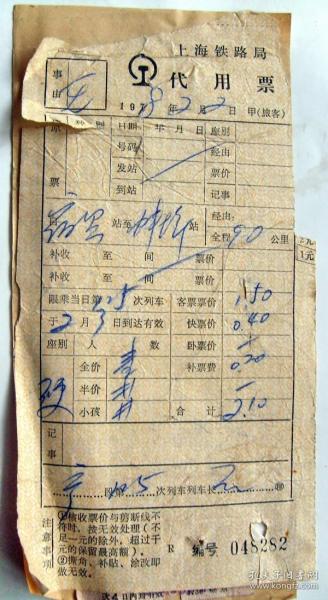 上海铁路局
事由 无
代用票
1978年2月2日 甲(旅客)
原票 类别 日期 年月日 座别
号码 经由
发站 票价
到站 记事
站至蚌埠站 经由:
全程90公里
补收 至 间 票价
补收 至 间 票价
限乘当日第125次列车 客票票价 1.50
于2月3日到达有效 快票价 0.40
座别 人数 卧票价 —
硬 全价 补票费 0.20
半价 —
小孩 合计 2.10
记事
段 次列车列车长 ㊞
注意事项
①核收票价与剪断线不
符时,按无效处理(不
足一元的除外,超过千
元的保留最高额)。
②撕角、补贴、涂改即
做无效。
R 编号 048282
1元
孔夫子旧书网